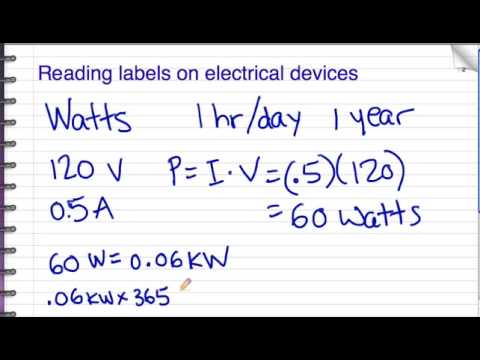 Reading labels on electrical devices
Watts 1 hr/day 1 year
120 V P = I · V = (.5)(120)
0.5 A = 60 Watts
60 W = 0.06 KW
.06 KW x 365